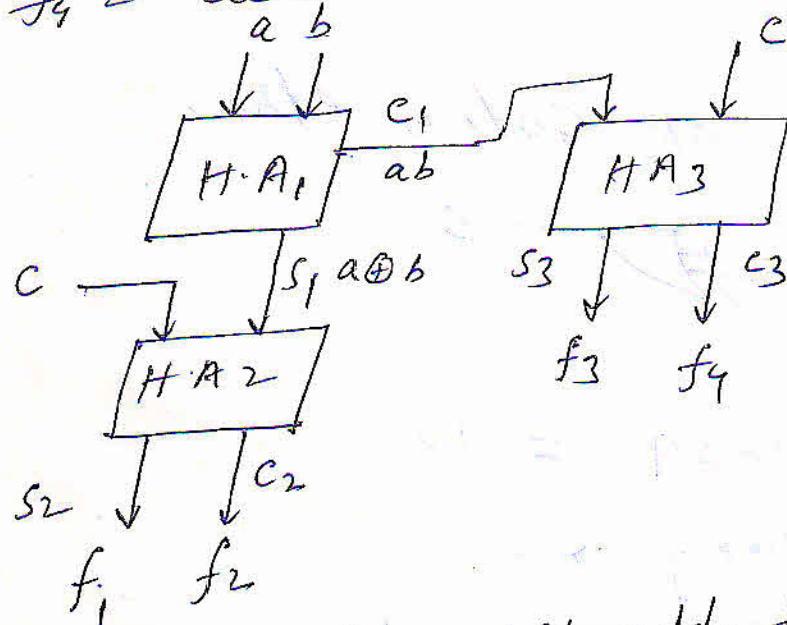 f4 =
a b
c
C1
H.A1
ab
HA3
C
S1 a⊕b
S3
C3
H.A2
f3
f4
S2
C2
f1
f2